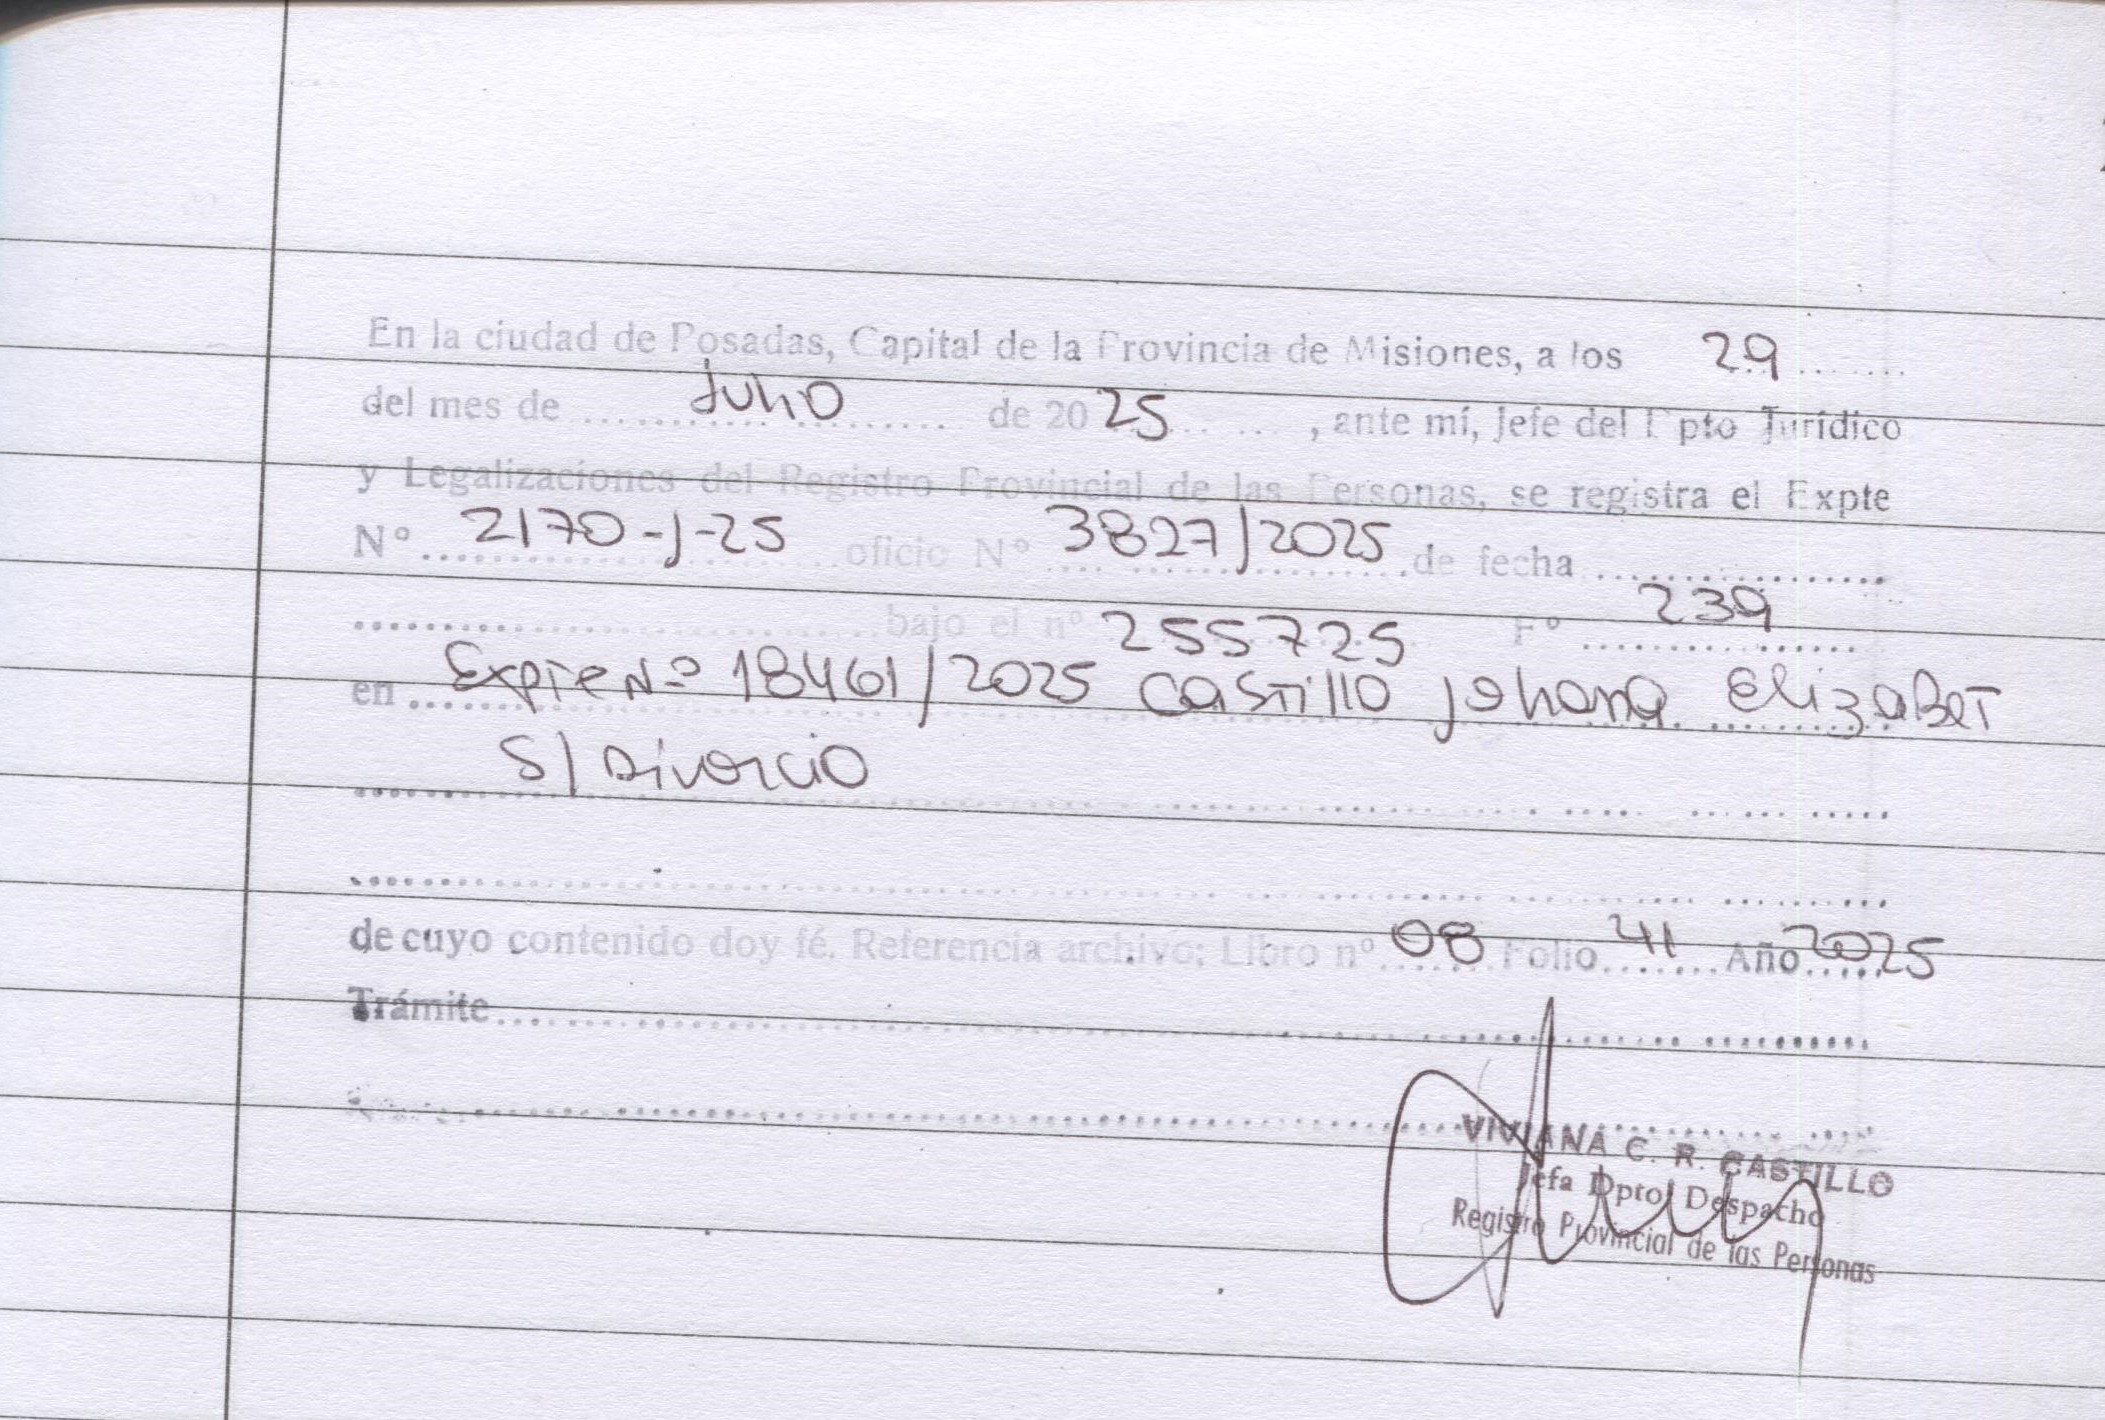 En la ciudad de Posadas, Capital de la Provincia de Misiones, a los 29
del mes de Julio de 2025, ante mí, Jefe del Dpto Jurídico
y Legalizaciones del Registro Provincial de las Personas, se registra el Expte
Nº 2170-J-25 oficio Nº 3827/2025 de fecha
bajo el nº 255725 Fº 239
en Expte Nº 18461/2025 Castillo Johana ElizaBeT
S/ Divorcio
de cuyo contenido doy fé. Referencia archivo; Libro nº 08 Folio 41 Año 2025
Trámite
VIVIANA C. R. CASTILLO
Jefa Dpto Despacho
Registro Provincial de las Personas